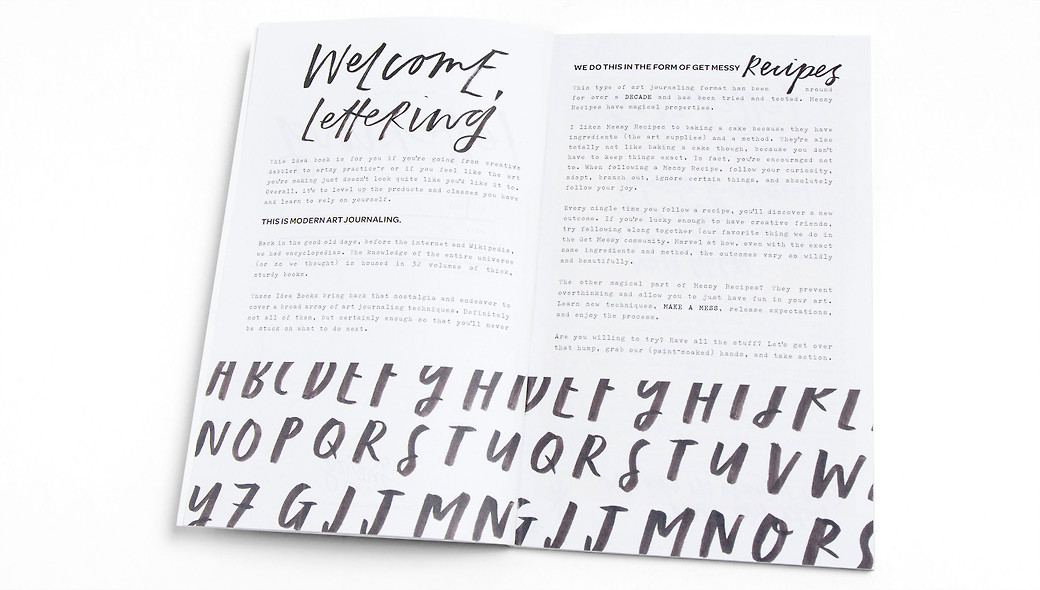 Welcome,
Lettering
This Idea book is for you if you're going from creative
dabbler to artsy practice'r or if you feel like the art
you're making just doesn't look quite like you'd like it to.
Overall, it's to level up the products and classes you have
and learn to rely on yourself.
THIS IS MODERN ART JOURNALING.
Back in the good old days, before the internet and Wikipedia,
we had encyclopedias. The knowledge of the entire universe
(or so we thought) is housed in 32 volumes of thick,
sturdy books.
These Idea Books bring back that nostalgia and endeavor to
cover a broad array of art journaling techniques. Definitely
not all of them, but certainly enough so that you'll never
be stuck on what to do next.
HBCDEFYHI
NOPQRSTU
Y7GIJMN
WE DO THIS IN THE FORM OF GET MESSY Recipes
This type of art journaling format has been around
for over a DECADE and has been tried and tested. Messy
Recipes have magical properties.
I liken Messy Recipes to baking a cake because they have
ingredients (the art supplies) and a method. They're also
totally not like baking a cake though, because you don't
have to keep things exact. In fact, you're encouraged not
to. When following a Messy Recipe, follow your curiosity,
adapt, branch out, ignore certain things, and absolutely
follow your joy.
Every single time you follow a recipe, you'll discover a new
outcome. If you're lucky enough to have creative friends,
try following along together (our favorite thing we do in
the Get Messy community. Marvel at how, even with the exact
same ingredients and method, the outcomes vary so wildly
and beautifully.
The other magical part of Messy Recipes? They prevent
overthinking and allow you to just have fun in your art.
Learn new techniques, MAKE A MESS, release expectations,
and enjoy the process.
Are you willing to try? Have all the stuff? Let's get over
that hump, grab our (paint-soaked) hands, and take action.
DEFYHIJKL
QRSTUVW
GIJMNORS